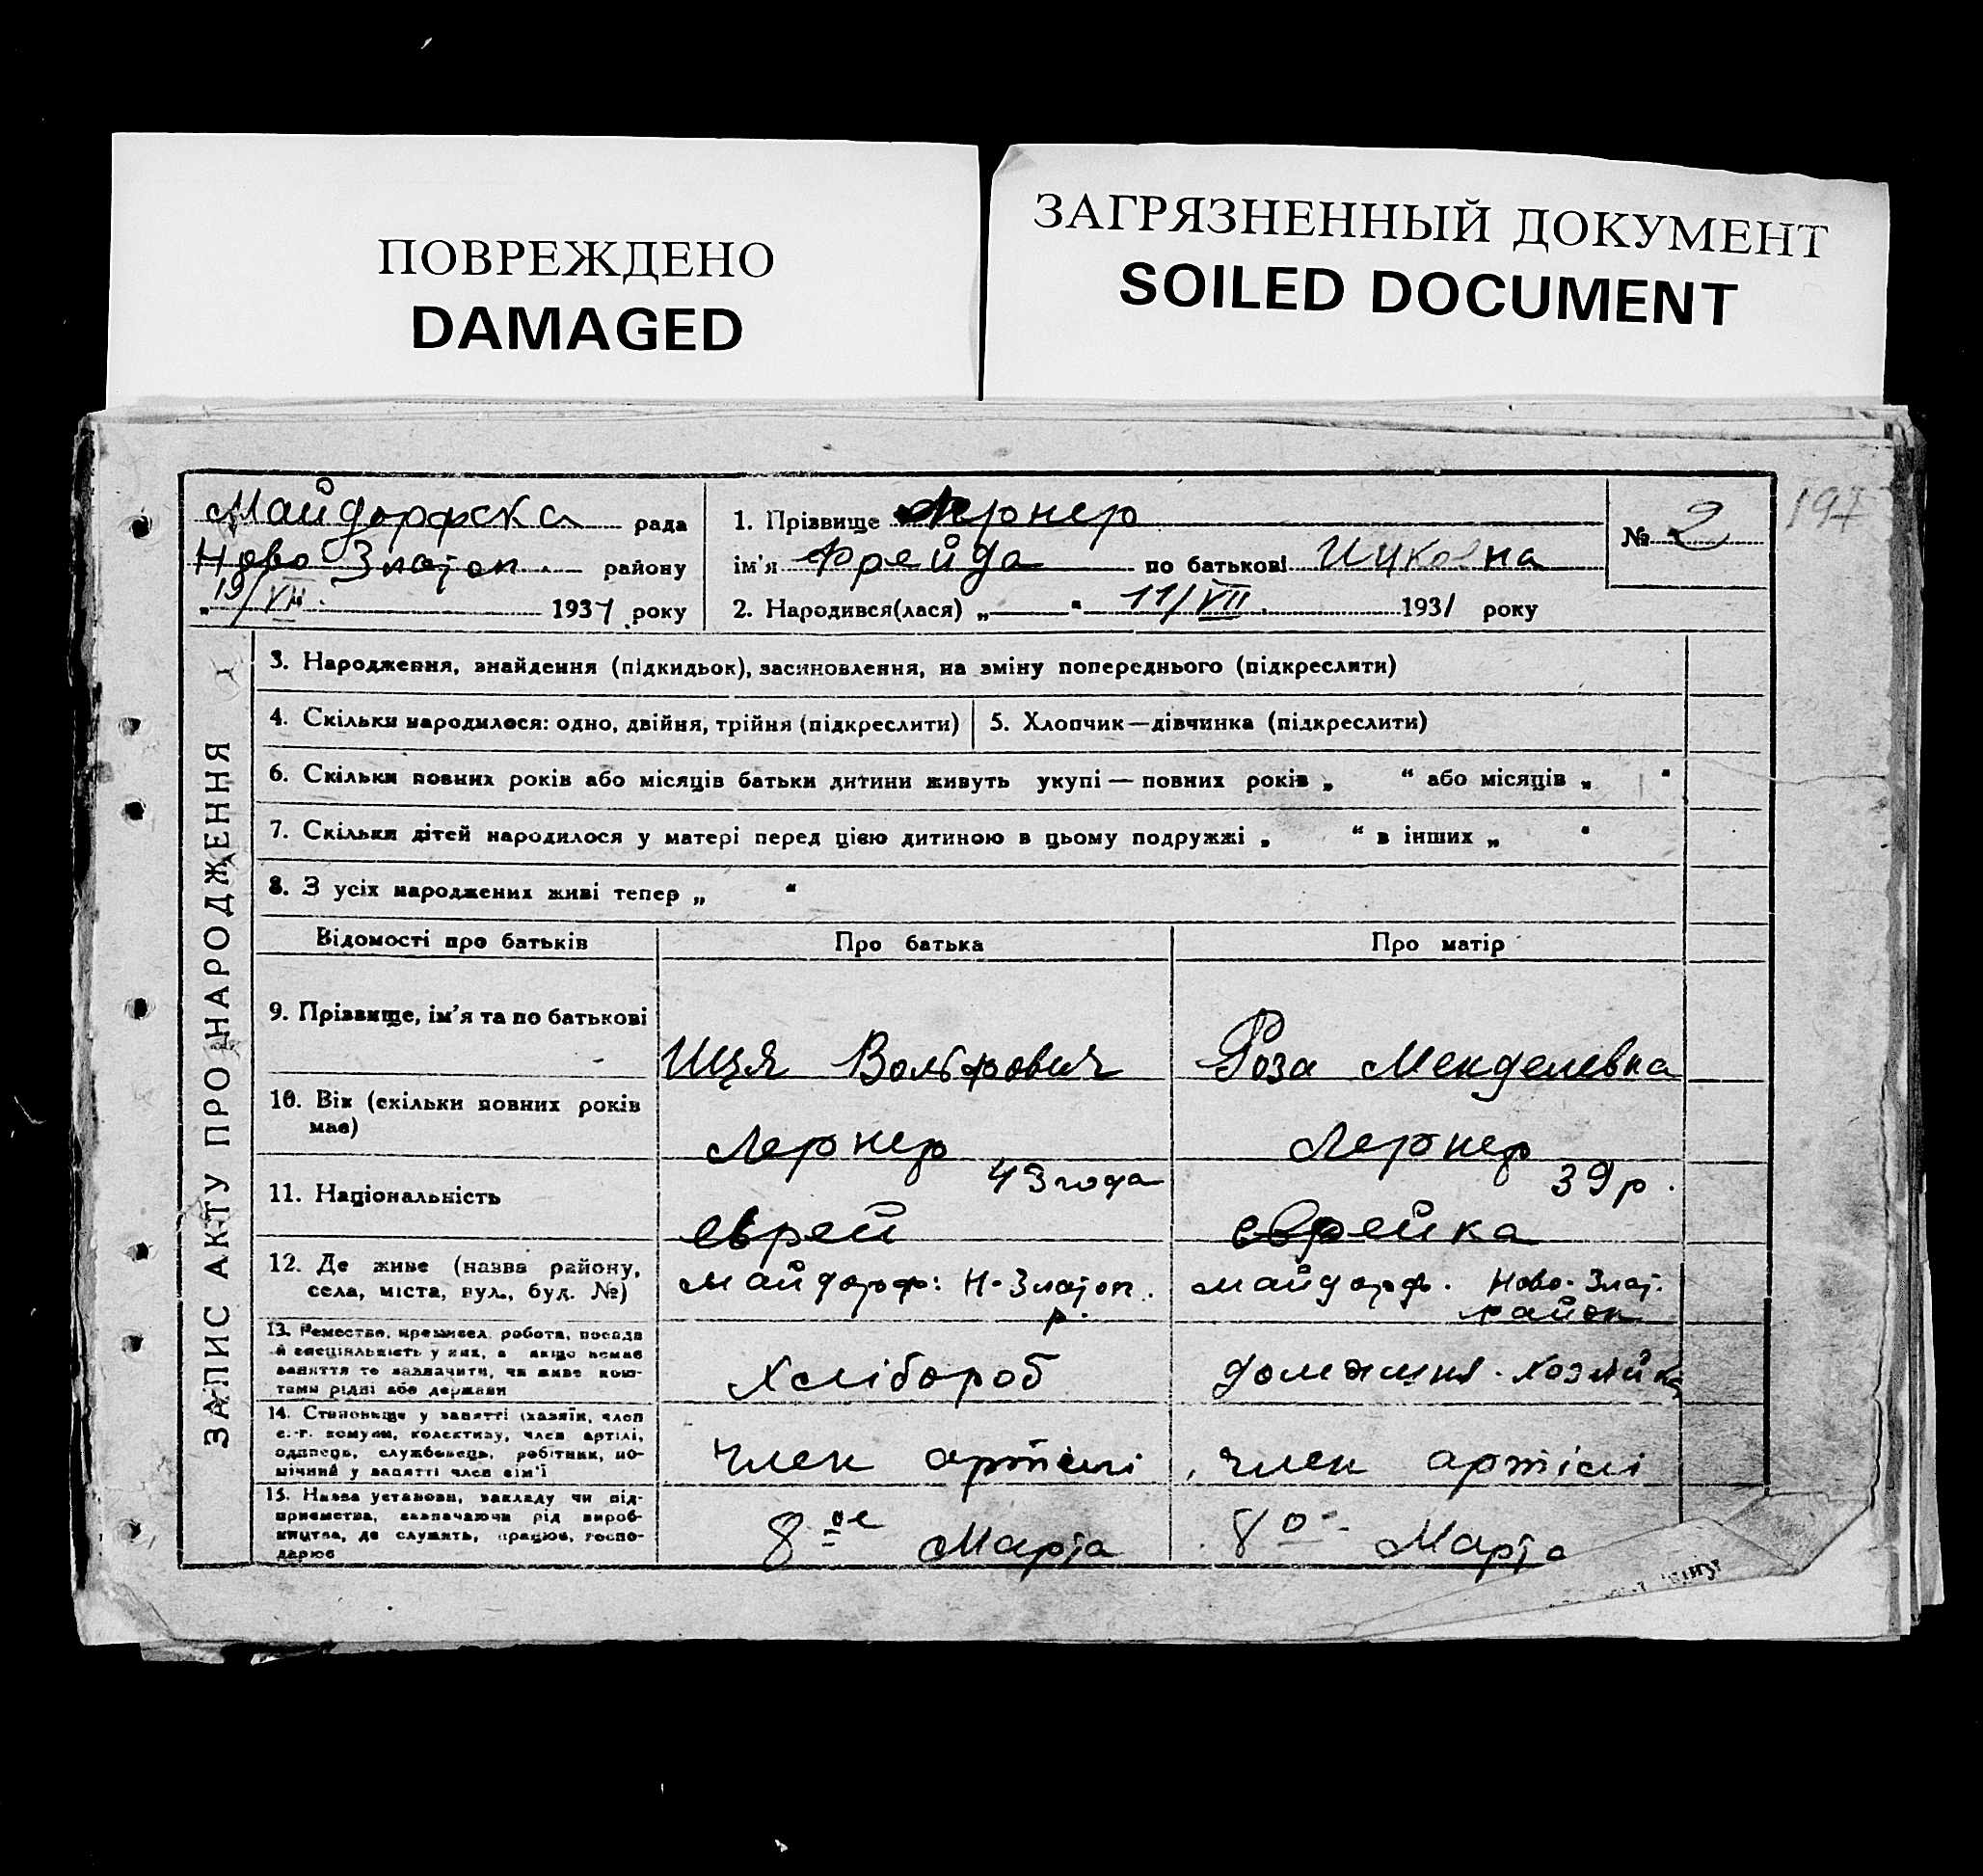 ПОВРЕЖДЕНО
DAMAGED
ЗАГРЯЗНЕННЫЙ ДОКУМЕНТ
SOILED DOCUMENT
197
Майдорфска рада
Ново Златоп. району
„19/VII. 1931 року
1. Прізвище Лернер
ім'я Фрейда по батькові Ицковна
2. Народився(лася) „ “ 11/VII. 1931 року
№ 2
ЗАПИС АКТУ ПРО НАРОДЖЕННЯ
3. Народження, знайдення (підкидьок), засиновлення, на зміну попереднього (підкреслити)
4. Скільки народилося: одно, двійня, трійня (підкреслити)
5. Хлопчик—дівчинка (підкреслити)
6. Скільки повних років або місяців батьки дитини живуть укупі — повних років „ “ або місяців „ “
7. Скільки дітей народилося у матері перед цією дитиною в цьому подружжі „ “ в інших „ “
8. З усіх народжених живі тепер „ “
Відомості про батьків Про батька Про матір
9. Прізвище, ім'я та по батькові
Вольфович
Роза Менделевна
10. Вік (скільки повних років
має)
Лернер
43 года
Лернер
39 р.
11. Національність
еврей
еврейка
12. Де живе (назва району,
села, міста, вул., буд. №)
Майдорф: Н-Златоп.
р.
Майдорф. Ново-Злат.
район
13. Ремество, промисел, робота, посада
й спеціяльність у них, а якщо немає
заняття то зазначити, чи живе кош-
тами рідні або держави
Хлібороб
хозяйка
14. Становище у занятті (хазяїн, член
с.-г. комуни, колективу, член артілі,
одинець, службовець, робітник, по-
мічний у занятті член сім'ї
член артілі
член артілі
15. Назва установи, закладу чи під-
приємства, зазначаючи рід вироб-
ництва, де служить, працює, госпо-
дарює
8ое Марта
8о- Марта